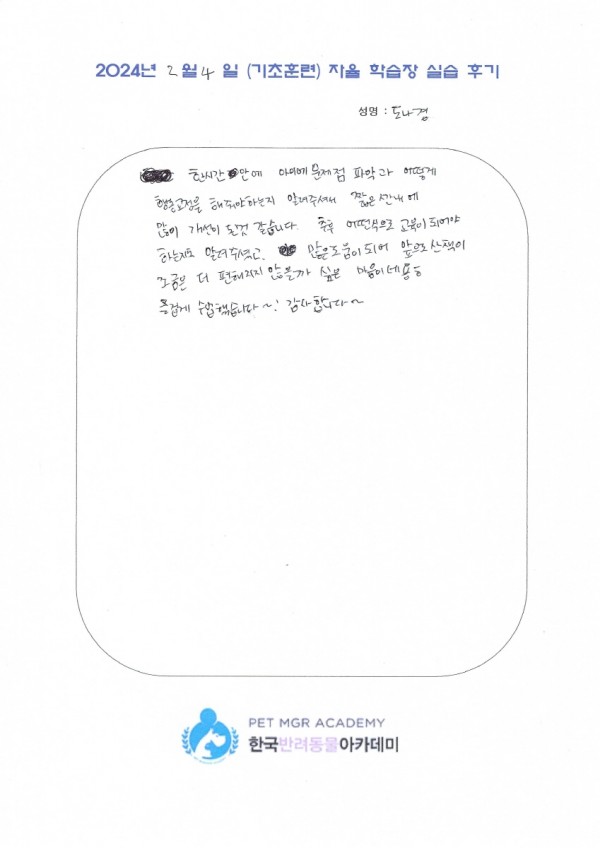 2024년 2월 4일 (기초훈련) 자율 학습장 실습 후기
성명 : 도나경
한시간 안에 아이에 문제점 파악과 어떻게
행동교정을 해줘야하는지 알려주셔서 짧은시간내에
많이 개선이 된것 같습니다. 추후 어떤식으로 교육이 되어야
하는지도 알려주셨고. 많은도움이되어 앞으로 산책이
조금은 더 편해지지 않을까 싶은 마음이네용ㅎ
즐겁게 수업했습니다~! 감사합니다~
PET MGR ACADEMY
한국반려동물아카데미